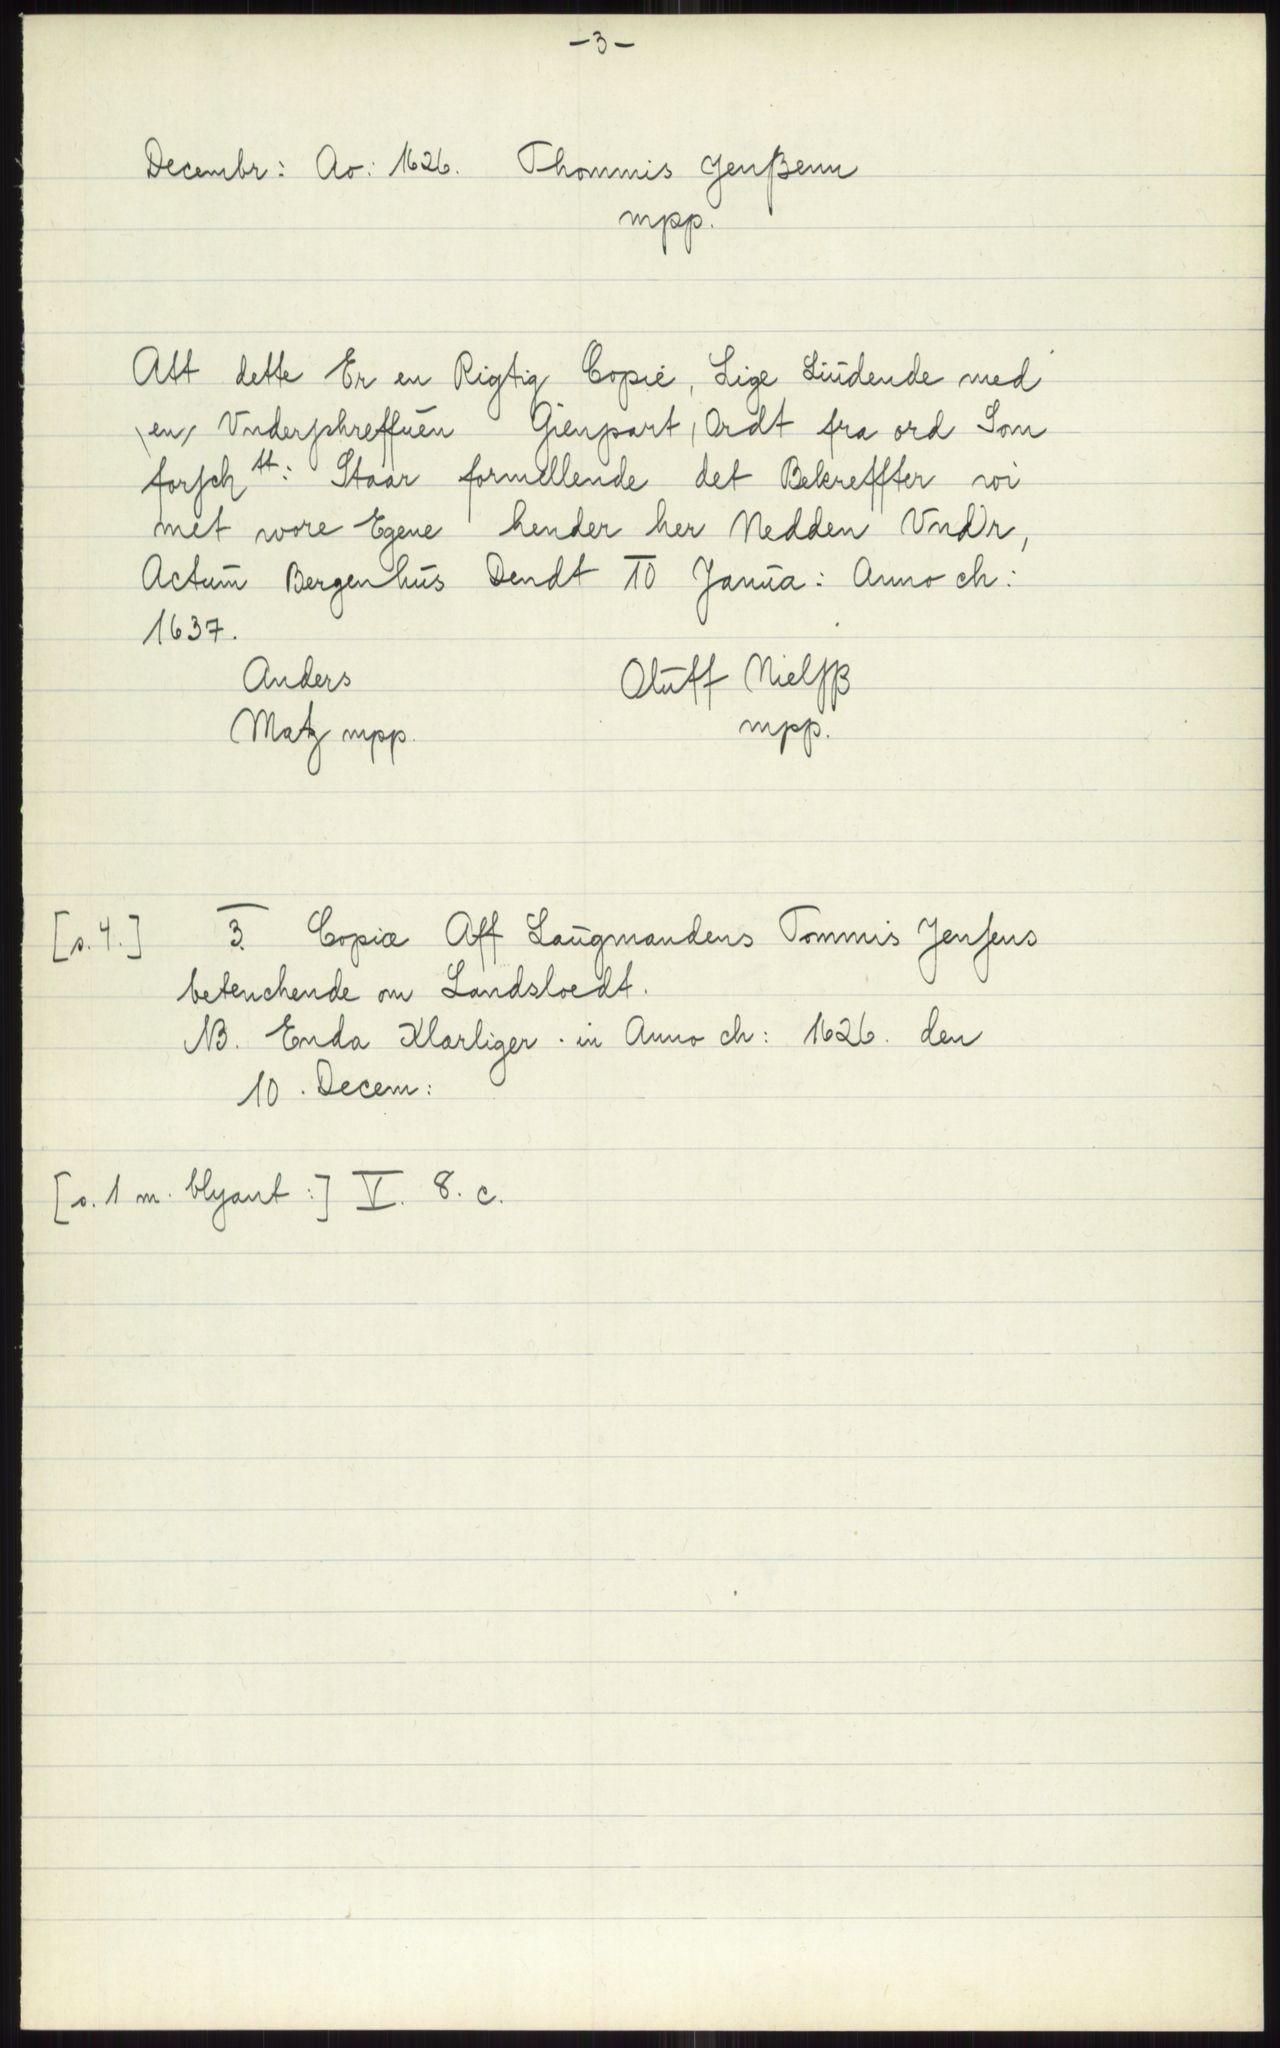 -3-
Decembr: Ao: 1626. Thommis Jenßenn
mpp.
Att dette Er en Rigtig Copie, Lige Lüüdende med
\en/ Vnderschreffuen Gienpart, Ordt fra ord Som
forsch tt: Staar formellende det Bekreffter wi
met wore Egene hender her Nedden Vnd'r,
Actum Bergenhus Dendt 10 Janua: Anno ch:
1637.
Anders Oluff Nielsß
Matz mpp. mpp.
[s. 4.] 3. Copia Aff Laugmandens Tommis Jensens
betenchende om Landsloedt.
NB. Enda Klarliger. in Anno ch: 1626. den
10. Decem:
[s. 1 m. blyant:] V. 8. c.